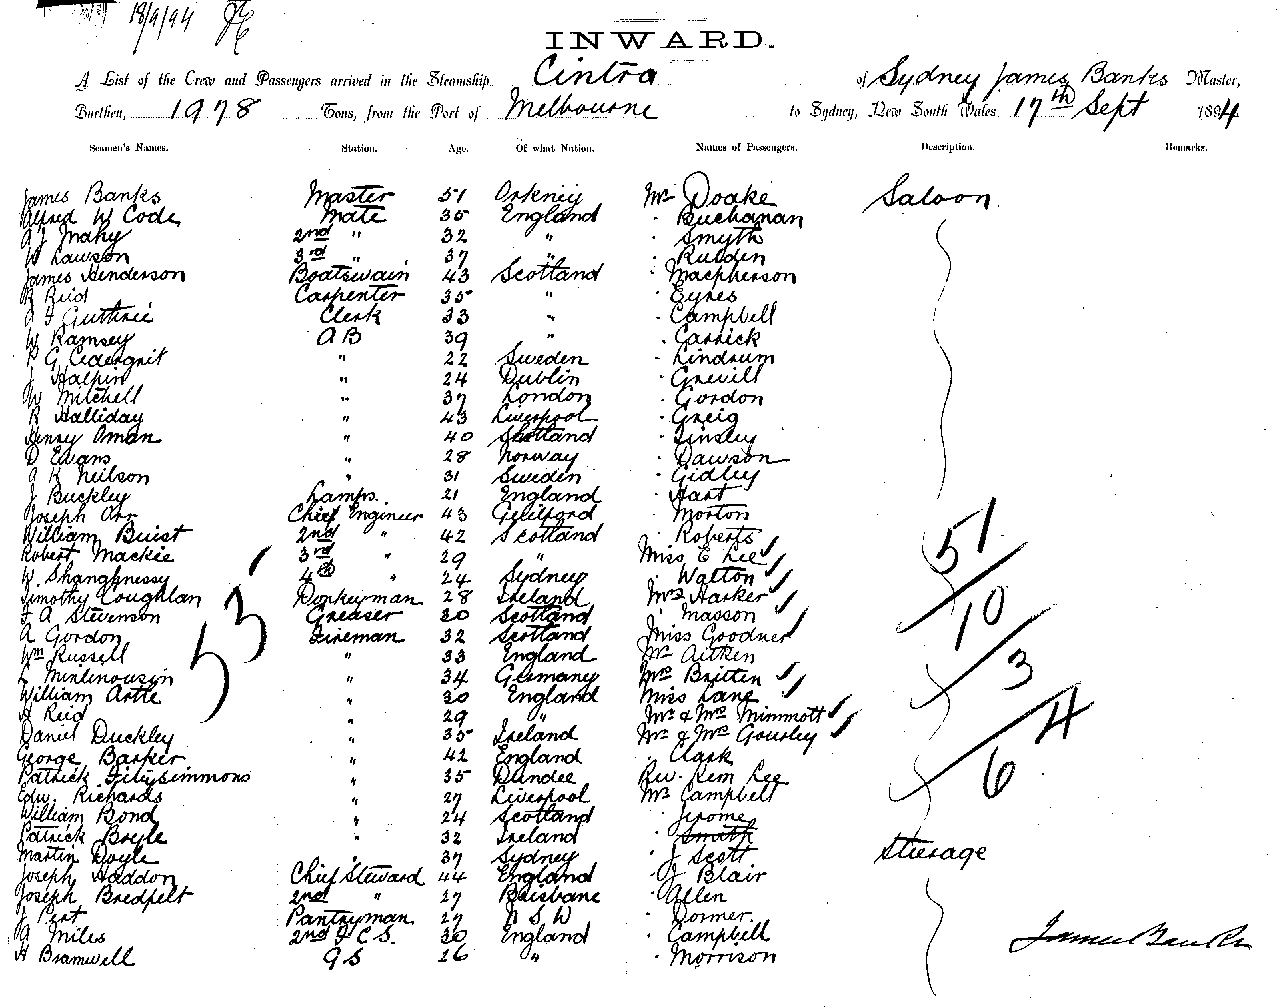 18/9/94
INWARD.
A List of the Crew and Passengers arrived in the Steamship Cintra of Sydney James Banks Master,
Burthen, 1978 Tons, from the Port of Melbourne to Sydney, New South Wales. 17th Sept 1894
Seamen's Names. Station. Age. Of what Nation. Names of Passengers. Description. Remarks.
James Banks Master 51 Orkney Mr Doake Saloon
Alfred W Code Mate 35 England " Buchanan
A J Mahy 2nd " 32 " " Smyth
W Lawson 3rd " 37 " " Rudden
James Henderson Boatswain 43 Scotland " Macpherson
R Reid Carpenter 35 " " Eyres
Guthrie Clerk 33 " " Campbell
W Ramsey AB 39 " " Carrick
G Cedergrit " 22 Sweden " Lindrum
J Halpin " 24 Dublin " Grevill
W Mitchell " 37 London " Gordon
R Halliday " 43 Liverpool " Greig
Henry Oman " 40 Scotland " Tinsley
D Evans " 28 Norway " Dawson
A K Neilson " 31 Sweden " Gidley
J Buckley Lamps. 21 England " Hart
Joseph Orr Chief Engineer 43 Guilford " Morton
William Buist 2nd " 42 Scotland " Roberts
Robert Mackie 3rd " 29 " Miss E Lee
W. Shanghnessy 4th " 24 Sydney " Walton
Timothy Coughlan Donkeyman 28 Ireland Mrs Harker
A Stevenson Greaser 30 Scotland " Masson
A Gordon Fireman 32 Scotland Miss Goodner
Wm Russell " 33 England Mr Aitken
" 34 Germany Mrs Britten
William Artle " 30 England Miss Lane
Reid " 29 " Mr & Mrs Mimmott
Daniel Duckley " 35 Ireland Mr & Mrs Gourley
George Barker " 42 England " Clark
Patrick Fitzsimmons " 35 Dundee Rev. Kem Lee
Edw Richards " 27 Liverpool Mr Campbell
William Bond " 24 Scotland " Jerome
Patrick Boyle " 32 Ireland " Smith
Martin Doyle " 37 Sydney " J Scott Steerage
Joseph Haddon Chief Steward 44 England " J Blair
Joseph Bredfelt 2nd " 27 Brisbane " Allen
J Pert Pantryman 27 N S W " Dormer
G Miles 2nd F.C.S. 30 England " Campbell
H Bramwell G S 26 " " Morrison
53
51
10
3
4
6
James Banks